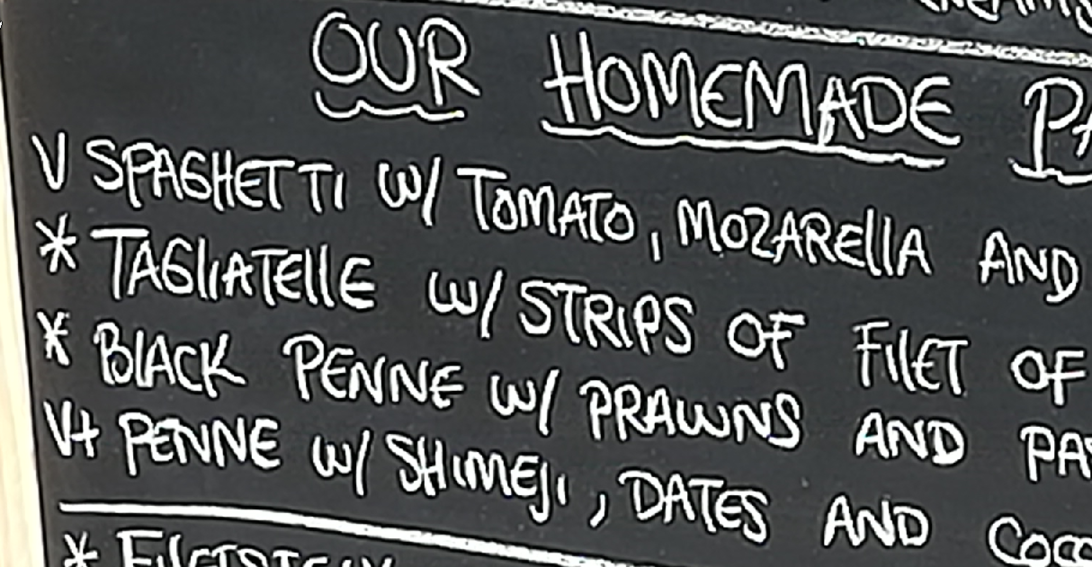 OUR HOMEMADE
V SPAGHETTI W/ TOMATO, MOZARELLA AND
* TAGLIATELLE W/ STRIPS OF FILET OF
* BLACK PENNE W/ PRAWNS AND
V+ PENNE W/ SHIMEJI, DATES AND
*